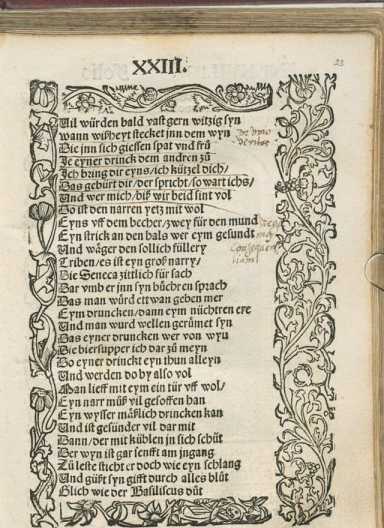 XXIII.
23
Uil würden bald vast gern witzig syn
wann wißheyt stecket jnn dem wyn
Die jnn sich giessen spat vnd frü
Je eyner drinck dem andren zů
Ich bring dir eyns / ich kützel dich /
Das gebürt dir / der spricht / so wart ichs /
Und wer mich / biß wir beid sint vol
Do ist den narren yetz mit wol
Eyns vff dem becher / zwey für den mund
Eyn strick an den hals wer eym gesundt
Und wäger den sollich füllery
Triben / es ist eyn groß narry /
Die Seneca zittlich für sach
Dar vmb er jnn syn büchren sprach
Das man würd ettwan geben mer
Eym druncken / dann eym nüchtren ere
Und man wurd wellen gerümet syn
Das eyner druncken wer von wyn
Die biersupper ich dar zů meyn
Do eyner drinckt eyn thun alleyn
Und werden do by also vol
Man lieff mit eym ein tür vff wol /
Eyn narr můß vil gesoffen han
Eyn wysser mäßlich drincken kan
Und ist gesünder vil dar mit
Dann / der mit küblen jn sich schüt
Der wyn ist gar senfft am jngang
Zů leste sticht er doch wie eyn schlang
Und güßt syn gifft durch alles blůt
Glich wie der Basiliscus důt